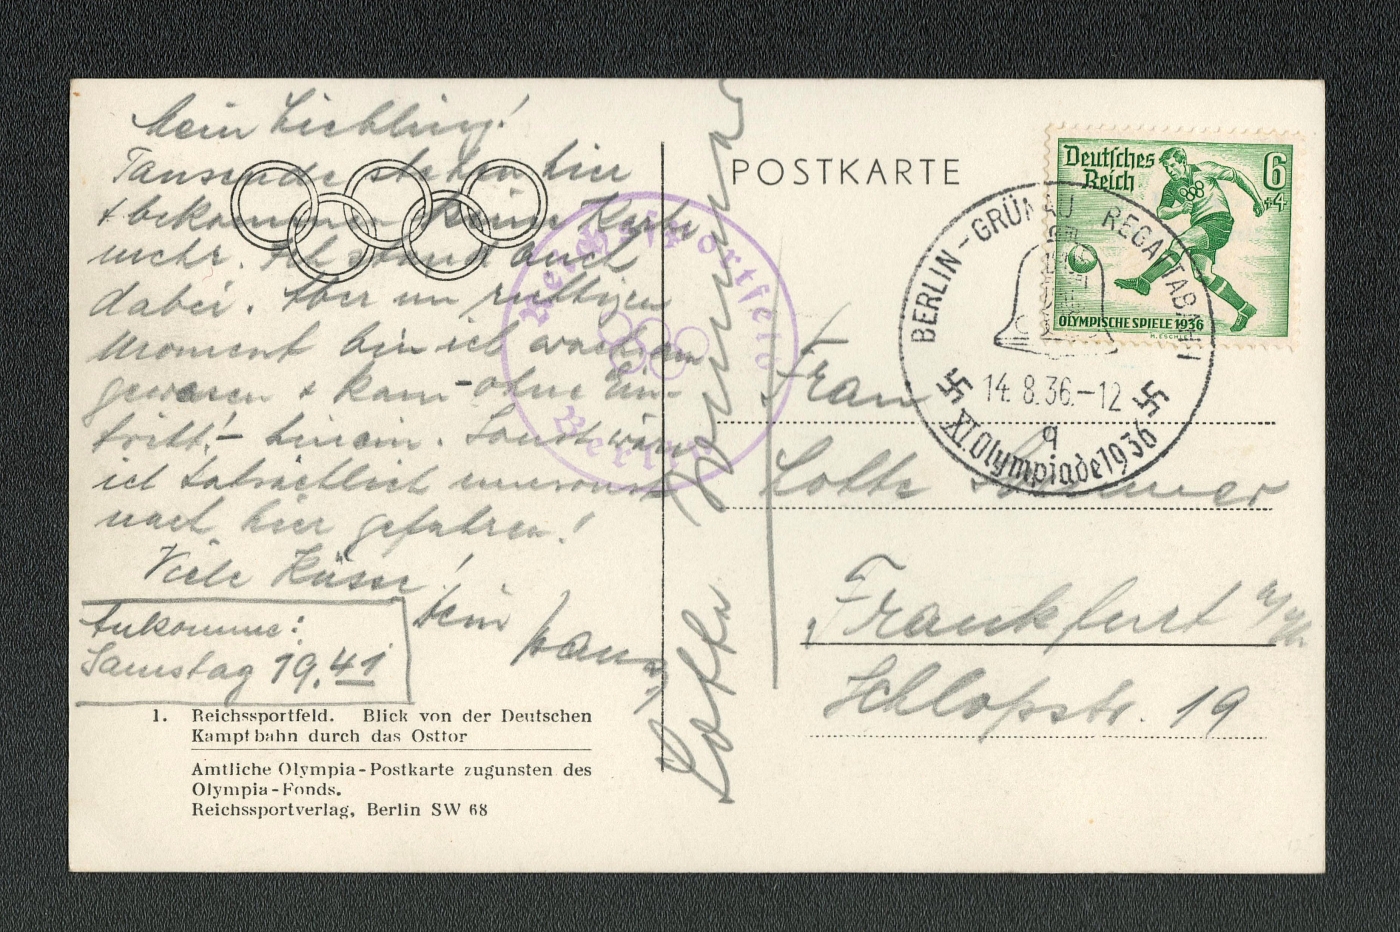 Mein Liebling!
Tausende stehen hier
+ bekommen keine Karte
mehr. Ich stand auch
dabei. Aber im richtigen
Moment bin ich wachsam
gewesen + kam - ohne Ein-
tritt! - hinein. Sonst wäre
ich tatsächlich umsonst
nach hier gefahren!
Viele Küsse!
Dein
Hans
Ankomme:
Samstag 19.41
1. Reichssportfeld. Blick von der Deutschen
Kampfbahn durch das Osttor
Amtliche Olympia-Postkarte zugunsten des
Olympia-Fonds.
Reichssportverlag, Berlin SW 68
Reichssportfeld
Berlin
Lotte
POSTKARTE
Deutsches
Reich
6
+4
OLYMPISCHE SPIELE 1936
BERLIN-GRÜNAU REGATTABAHN
14.8.36.-12
q
XI. Olympiade 1936
Frau
Lotte
Frankfurt a/M
Schloßstr. 19